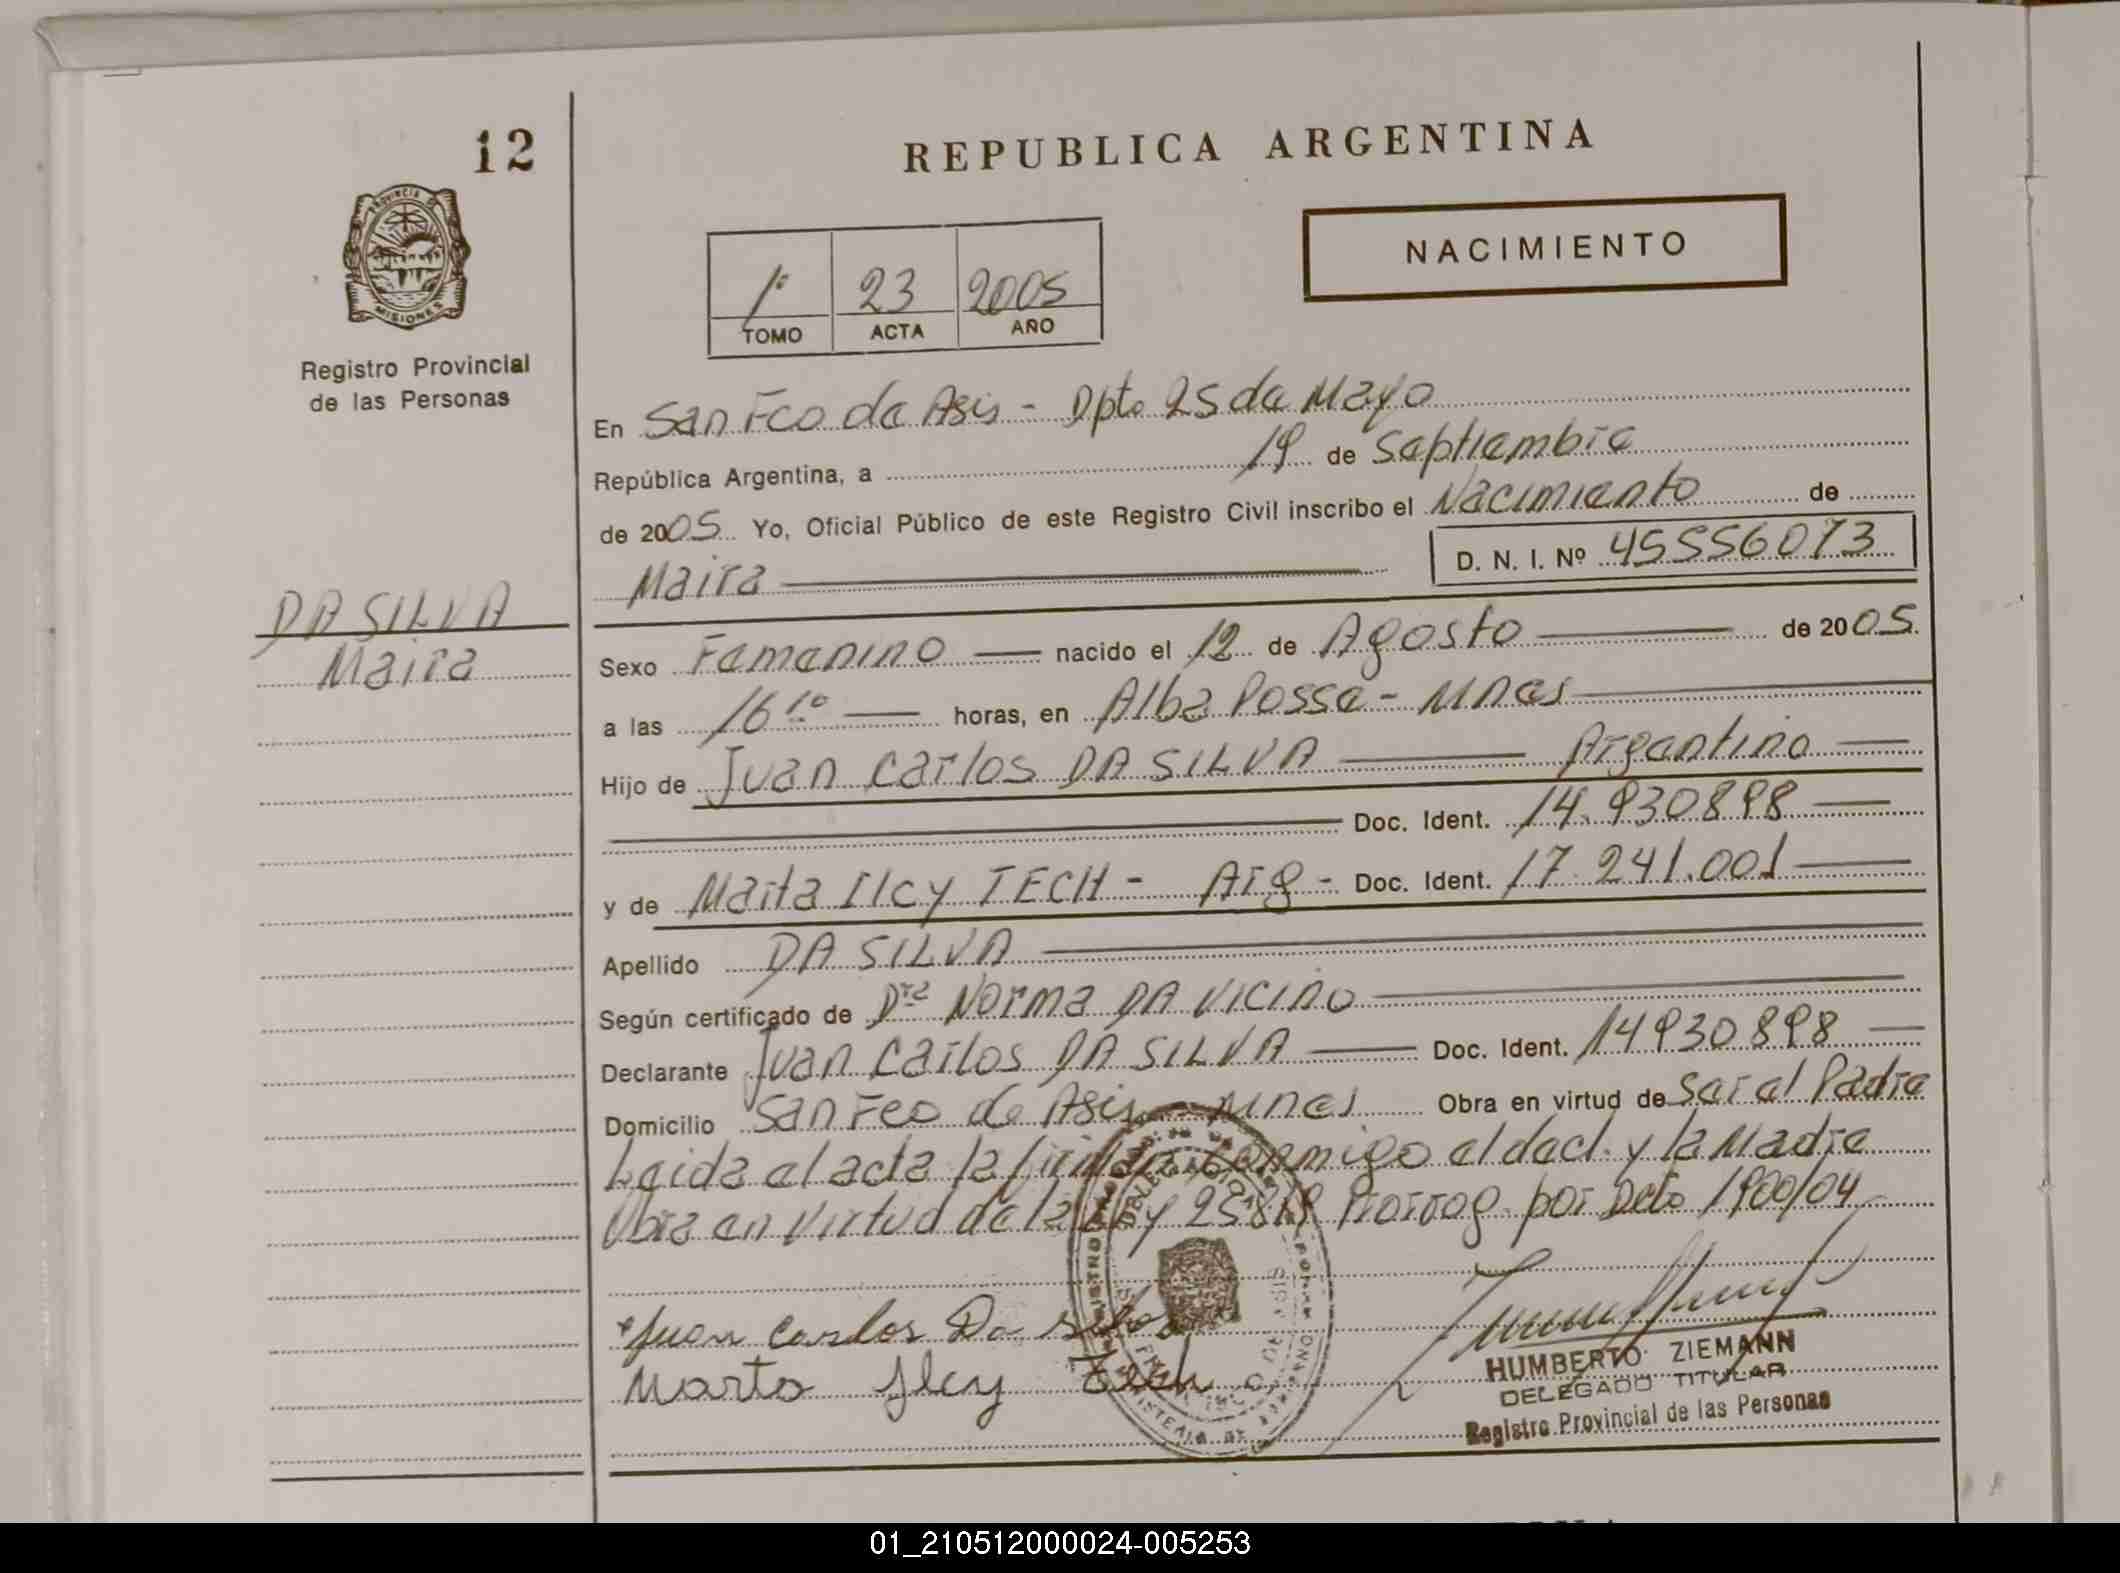 12
REPUBLICA ARGENTINA
PROVINCIA DE
MISIONES
NACIMIENTO
1º 23 2005
TOMO ACTA AÑO
Registro Provincial
de las Personas
En San Fco de Asis - Dpto 25 de Mayo
República Argentina, a 19 de Septiembre
de 2005 Yo, Oficial Público de este Registro Civil inscribo el Nacimiento de
Maira D. N. I. Nº 45556073
DA SILVA
Maira
Sexo Femenino nacido el 12 de Agosto de 2005
a las 16 10 horas, en Alba Posse - Mnes
Hijo de Juan Carlos DA SILVA Argentino
Doc. Ident. 14.930898
y de Marta Ilcy TECH - Arg - Doc. Ident. 17.241.001
Apellido DA SILVA
Según certificado de Dra Norma DA VICINO
Declarante Juan Carlos DA SILVA Doc. Ident. 14930898
Domicilio San Fco de Asis - Mnes Obra en virtud de Ser el Padre
Leida el acta la firman conmigo el decl. y la Madre
Obra en virtud de la Ley 25819 Prorrog. por Dcto 1900/04
Juan Carlos Da Silva
Marta Ilcy Tech
HUMBERTO ZIEMANN
DELEGADO TITULAR
Registro Provincial de las Personas
01_210512000024-005253